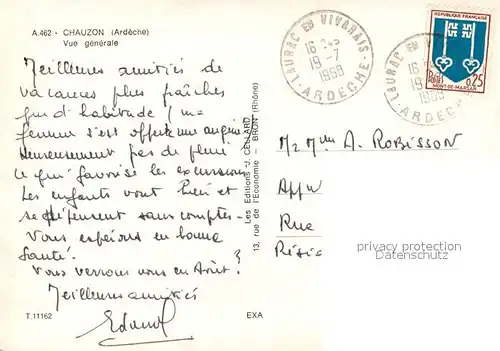 A.462 - CHAUZON (Ardèche)
Vue générale
Meilleures amitiés de
vacances plus fraîches
que d'habitude ! ma
femme s'est offert une angine
Heureusement pas de pluie
ce qui favorise les excursions
Les enfants vont bien et
se dépensent sans compter -
Vous espérons en bonne
Santé.
Vous verrons nous en Août ?
Meilleures amitiés
T.11162
EXA
Les Editions "J. CELLARD"
13, rue de l'Economie - BRON (Rhône)
LAURAC EN VIVARAIS
16 H
19 -7
1968
ARDECHE
LAURAC EN VIV
16
19
1968
ARDECHE
REPUBLIQUE FRANÇAISE
Postes
0,25
MONT-DE-MARSAN
Mr Mme A. ROBISSON
App
Rue
Résid
privacy protection
Datenschutz